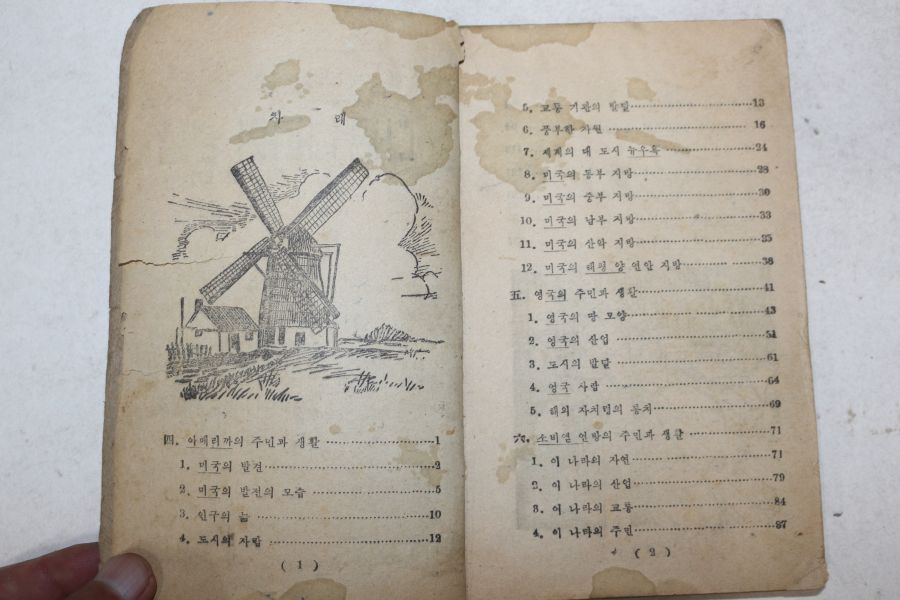 차 례
四. 아메리까의 주민과 생활 ……… 1
1. 미국의 발견 ……… 2
2. 미국의 발전의 모습 ……… 5
3. 인구의 늚 ……… 10
4. 도시의 자람 ……… 12
( 1 )
5. 교통 기관의 발달 ……… 13
6. 풍부한 자원 ……… 16
7. 세계의 대 도시 뉴우욕 ……… 24
8. 미국의 동부 지방 ……… 28
9. 미국의 중부 지방 ……… 30
10. 미국의 남부 지방 ……… 33
11. 미국의 산악 지방 ……… 35
12. 미국의 태평 양 연안 지방 ……… 38
五. 영국의 주민과 생활 ……… 41
1. 영국의 땅 모양 ……… 43
2. 영국의 산업 ……… 51
3. 도시의 발달 ……… 61
4. 영국 사람 ……… 64
5. 해외 자치령의 통치 ……… 69
六. 소비엘 연방의 주민과 생활 ……… 71
1. 이 나라의 자연 ……… 71
2. 이 나라의 산업 ……… 79
3. 이 나라의 교통 ……… 84
4. 이 나라의 주민 ……… 87
( 2 )